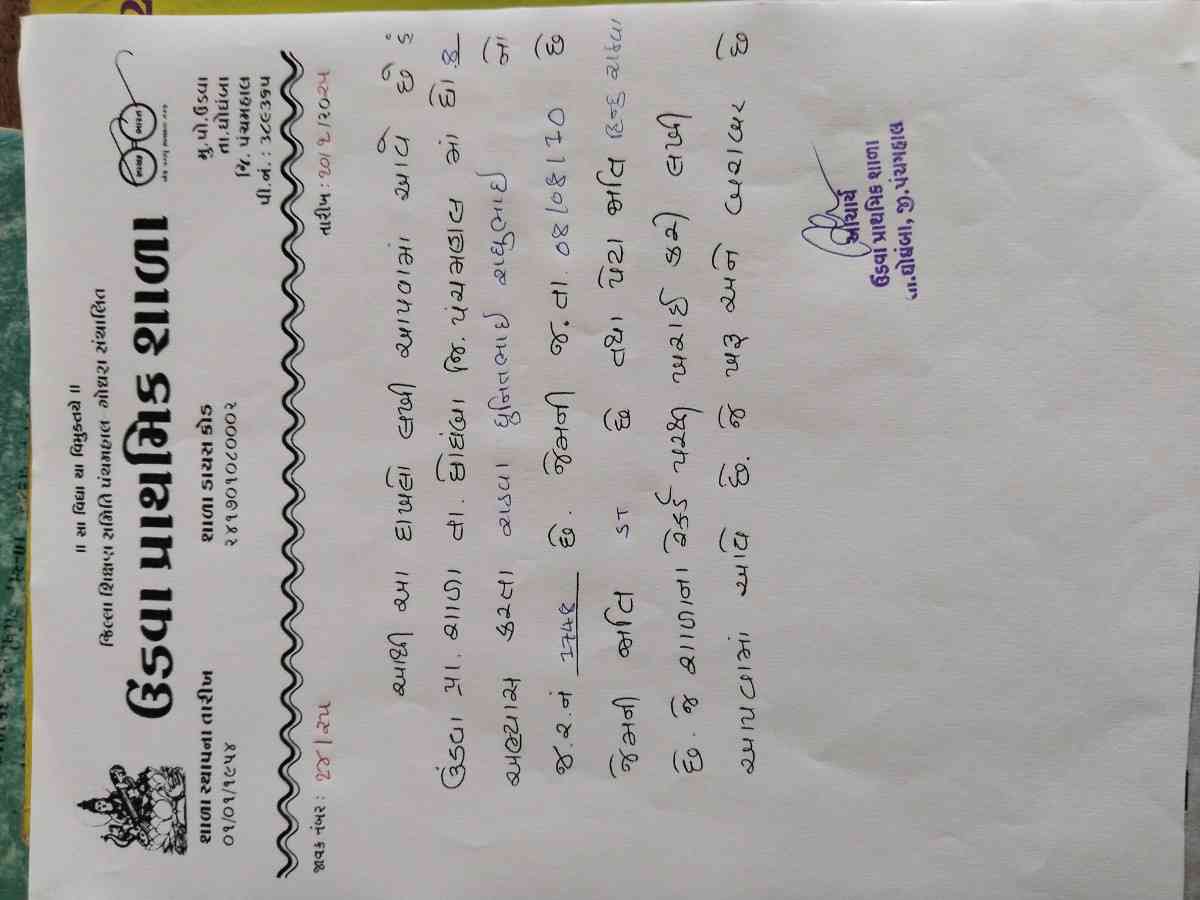 ॥ સા વિદ્યા યા વિમુક્તયે ॥
જિલ્લા શિક્ષણ સમિતિ પંચમહાલ- ગોધરા સંચાલિત
ઉંડવા પ્રાથમિક શાળા
સ્વચ્છ ભારત
એક કદમ સ્વચ્છતા કી ઓર
શાળા સ્થાપના તારીખ
૦૧/૦૧/૧૯૫૪
શાળા ડાયસ કોડ
૨૪૧૭૦૧૦૮૦૦૦૨
મુ.પો.ઉંડવા
તા.ઘોઘંબા
જિ. પંચમહાલ
પી.નં.: ૩૮૯૩૬૫
જાવક નંબર : ૨૪/૨૫
તારીખ : ૨૦/૨/૨૦૨૫
આથી આ દાખલો લખી આપવામાં આવે છે કે
ઉંડવા પ્રા. શાળા તા. ઘોઘંબા જિ. પંચમહાલ માં ધો 8
અભ્યાસ કરતા રાઠવા પુનિતભાઇ રાધુભાઇ નો
જ.ર.નં 1748 છે. જેમની જ. તા. 08/08/10 છે
જેમની જાતિ ST છે તથા પેટા જાતિ હિન્દુ રાઠવા
છે. જે શાળાના રેકર્ડ પરથી ખરાઈ કરી લખી
આપવામાં આવે છે. જે ખરૂ અને બરાબર છે
આચાર્ય
ઉંડવા પ્રાથમિક શાળા
તા.ઘોઘંબા, જી.પંચમહાલ